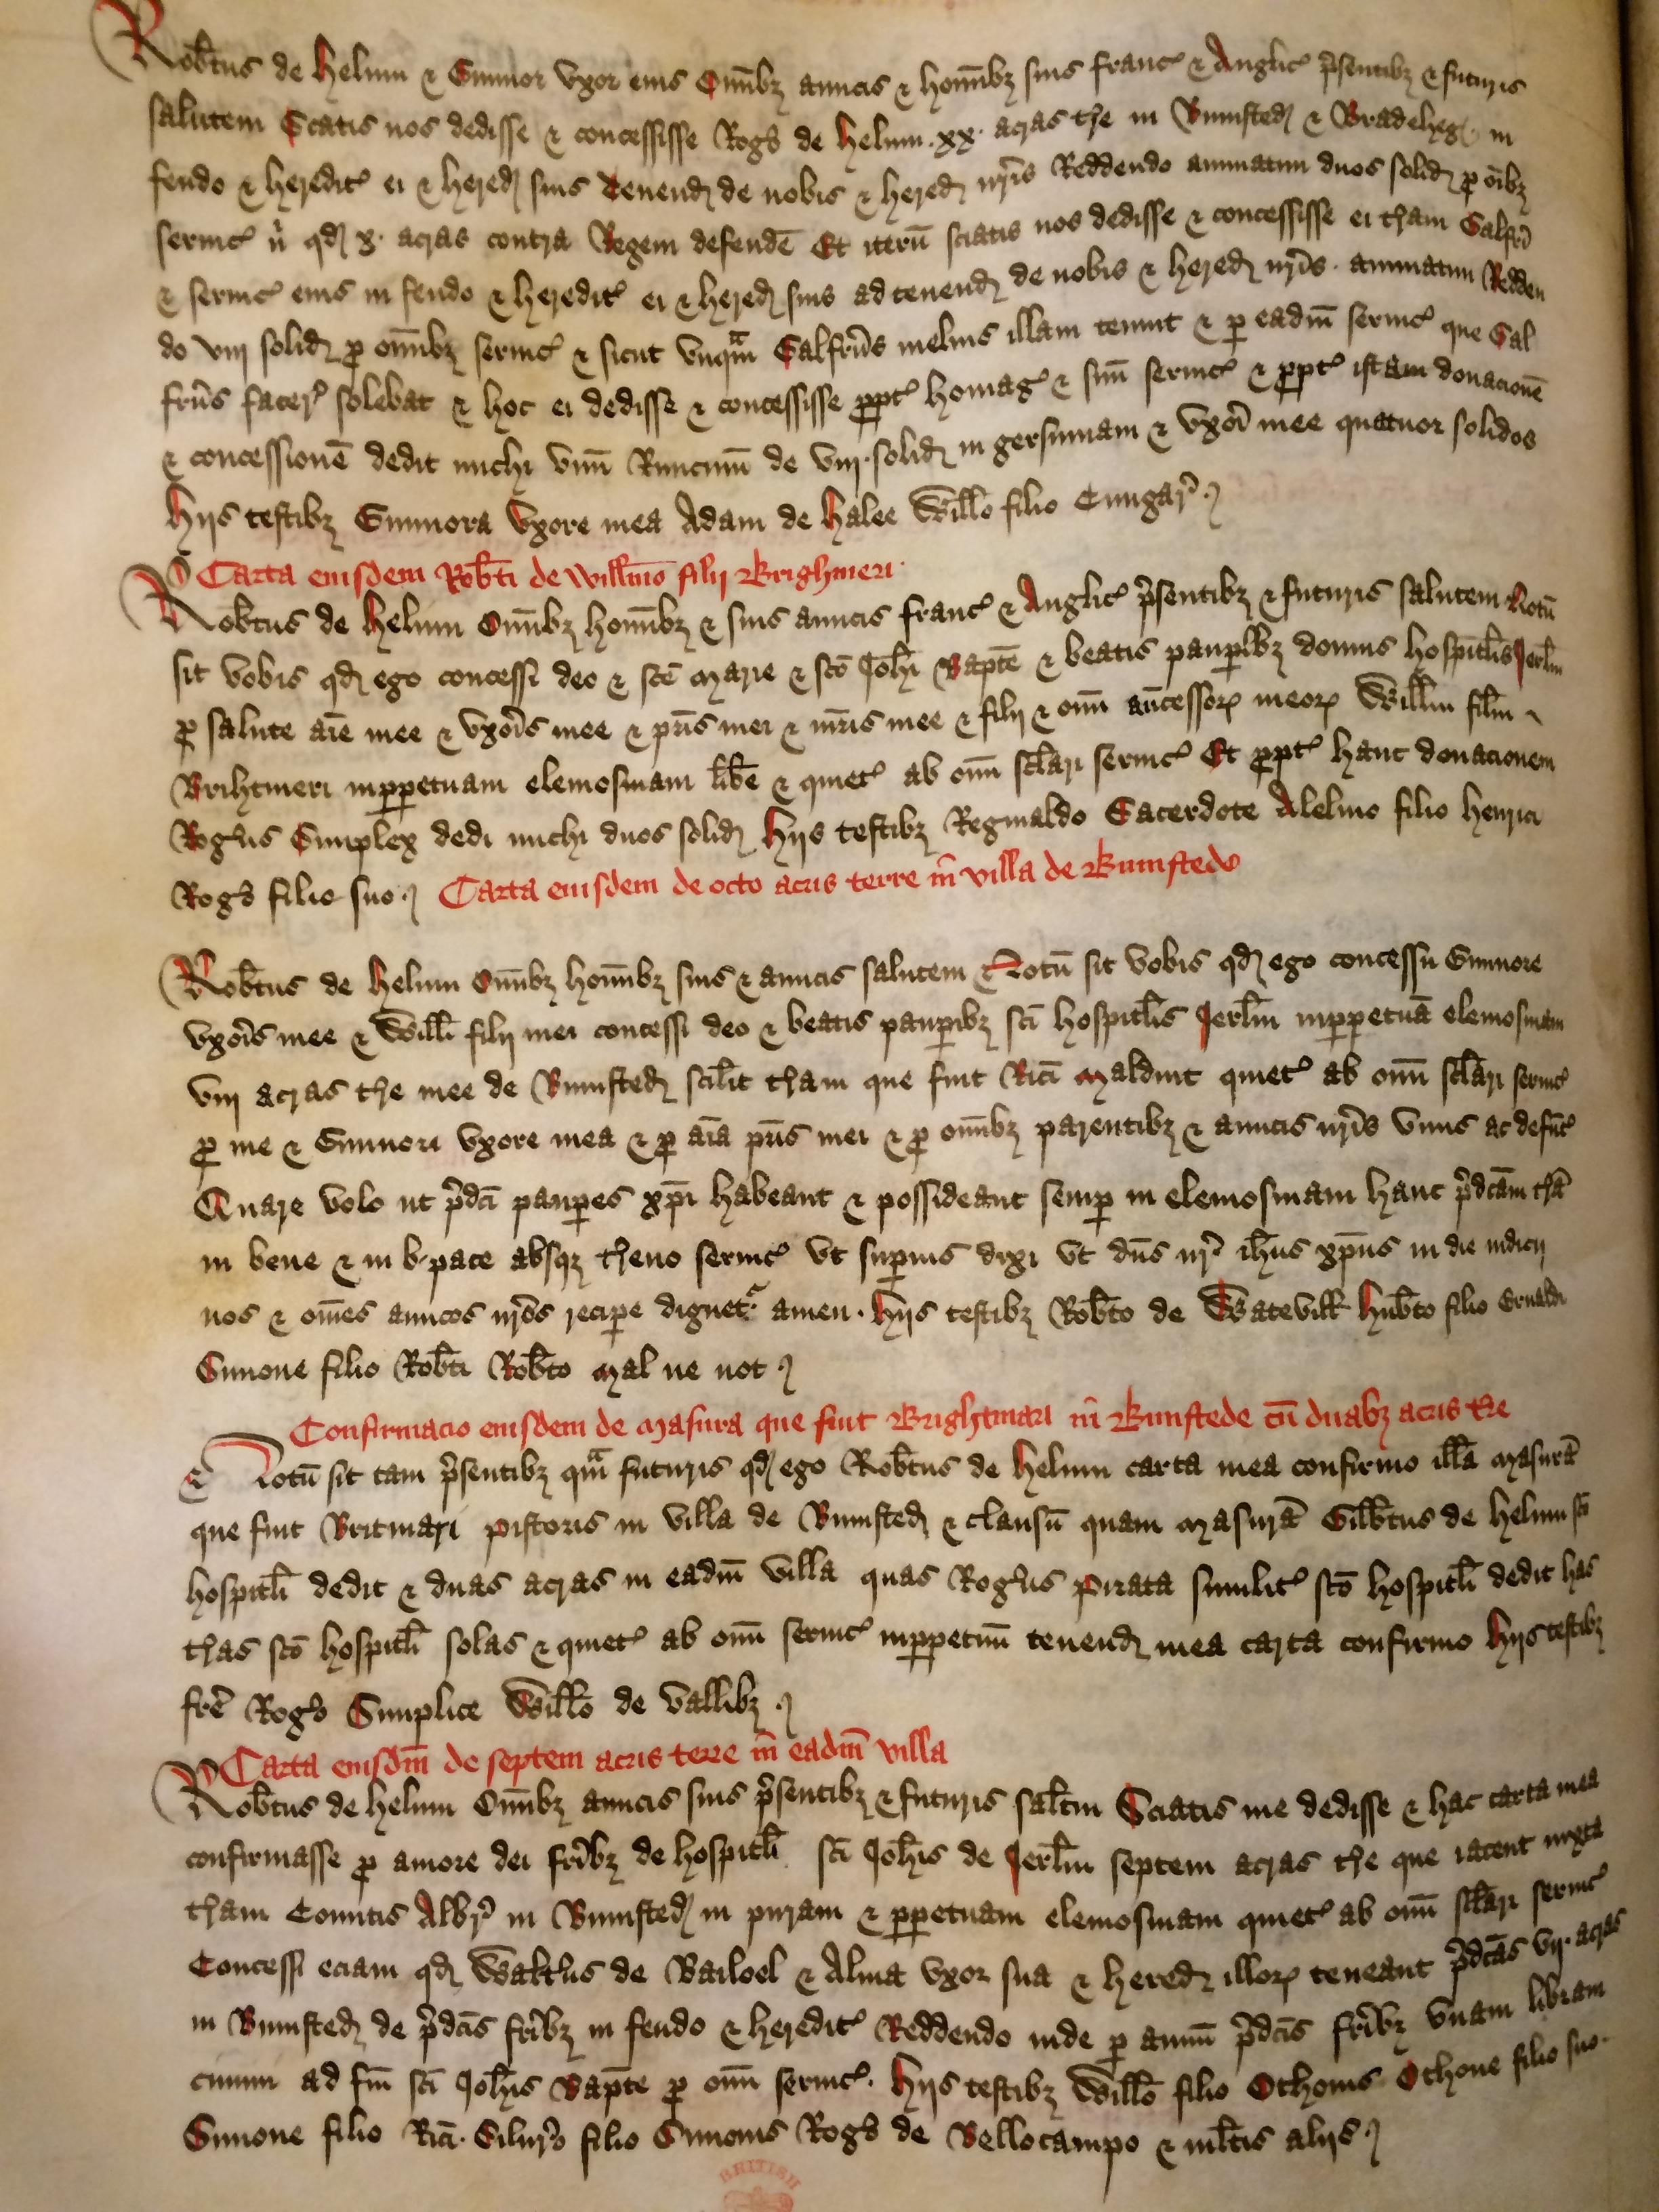 Robt̄us de helium ⁊ Gunnor vxor eius Om̄ibꝫ amicis ⁊ homı̄bꝫ suis franc̓ ⁊ Anglic̓ p̄sentibꝫ ⁊ futuris
salutem Sciatis nos dedisse ⁊ concessisse Rog̓o de helium .xx. acras t̓re in Bumsted̛ ⁊ Bradeheg̛ in
feudo ⁊ heredit̓ ei ⁊ hered̛ suis tenend̛ de nobis ⁊ hered̛ nr̄is Reddendo annuatim duos solid̛ ꝓ oı̄bꝫ
seruic̓ n̄ qd̛ x. acras contra Regem defendē Et iterū sciatis nos dedisse ⁊ concessisse ei t̓ram Galfrı̄
⁊ seruic̓ eius in feudo ⁊ heredit̓ ei ⁊ hered̛ suis ad tenend̛ de nobis ⁊ hered̛ nr̄is . annuatim Redden
do viij solid̛ ꝓ om̄ibꝫ seruic̓ ⁊ sicut vnqᵃm Galfrı̄s melius illam tenuit ⁊ ꝑ eadm̄ seruic̓ que Gal
frı̄s facer̓ solebat ⁊ hoc ei dedisse ⁊ concessisse ꝓpt̓ homag̓ ⁊ suū seruic̓ ⁊ ꝓpt̓ istam donacionē
⁊ concessionē dedit michi vnū Runcinū de viij. solid̛ in gersumam ⁊ vxorı̄ mee quatuor solidos
hijs testibꝫ Gunnora vxore mea Adam de halee Will̄o filio Cungar̓
Carta eiusdem Robt̄i de Will̄mo filij Brighmeri
Robt̄us de helium Om̄ibꝫ homı̄bꝫ ⁊ suis amicis franc̓ ⁊ Anglic̓ p̄sentibꝫ ⁊ futuris salutem Notū
sit vobis qd̛ ego concessi deo ⁊ sc̄e Marie ⁊ sc̄o Joh̄i Bapt̄e ⁊ beatis pauꝑibꝫ domus hospital̄is Jerl̄m
ꝓ salute aı̄e mee ⁊ vxorı̄s mee ⁊ pr̄is mei ⁊ mr̄is mee ⁊ filij ⁊ om̄i an̄cessorꝝ meorꝝ Will̄m fil̄m
Brihtmeri inꝑpetuam elemosinam lib̄e ⁊ quiet̓ ab om̄i scl̄ari seruic̓ Et ꝓpt̓ hanc donacionem
Rog̓us Simplex dedi michi duos solid̛ hijs testibꝫ Reginaldo Sacerdote Alelmo filio henrici
Rog̓o filio suo Carta eiusdem de octo acris terre in villa de Bumstede
Robt̄us de helium Om̄ibꝫ homı̄bꝫ suis ⁊ amicis salutem Notū sit vobis qd̛ ego concessu Gunnore
vxorı̄s mee ⁊ Will̄i filij mei concessi deo ⁊ beatis pauꝑibꝫ sc̄i hospitl̄is Jerl̄m inꝑpetuā elemosinam
viij acras t̓re mee de Bumsted̛ scil̄it t̓ram que fuit Ric̄i Malduit quiet̓ ab om̄i scl̄ari seruic̓
ꝓ me ⁊ Gunnori vxore mea ⁊ ꝓ aı̄a pr̄is mei ⁊ ꝓ om̄ibꝫ parentibꝫ ⁊ amicis nr̄is viuis ac defūc̓
Quare volo ut p̄dc̄i pauꝑes xp̄i habeant ⁊ possideant semꝑ in elemosinam hanc p̄dc̄am t̓rā
in bene ⁊ in b. pace absqꝫ t̓reno seruic̓ vt suꝑius dixi vt dn̄s nr̄ ih̄us xp̄us in die iudicij
nos ⁊ om̄es amicos nr̄os reciꝑe dignet̓ amen . hijs testibꝫ Robt̄o de Watevill̄ hubt̄o filio Ernaldi
Simone filio Robt̄i Robt̄o Mal ne not
Confirmacio eiusdem de Masura que fuit Brightmari in Bumstede cū duabꝫ acris t̓re
Notū sit tam p̄sentibꝫ qᵃm futuris qd̛ ego Robt̄us de helium carta mea confirmo ill̄a Masurā
que fuit Britmari pistoris in villa de Bumsted̛ ⁊ clausū quam Masurā Gilbt̄us de helium sc̄o
hospitl̄i dedit ⁊ duas acras in eadm̄ villa quas Rog̓us Pirata similit̓ sc̄o hospitl̄i dedit has
t̓ras sc̄o hospitl̄i solas ⁊ quiet̓ ab om̄i seruic̓ inꝑpetuū tenend̛ mea carta confirmo hijs testibꝫ
fr̄e Rog̓o Simplice Will̄o de vallibꝫ
Carta eiusdm̄ de septem acris terre in eadm̄ villa
Robt̄us de helium Om̄ibꝫ amicis suis p̄sentibꝫ ⁊ futuris salt̄m Sciatis me dedisse ⁊ hac carta mea
confirmasse ꝓ amore dei fr̄ibꝫ de hospitl̄i sc̄i Joh̄is de Jerl̄m septem acras t̓re que iacent iuxta
t̓ram Comitis Albr̓ in Bumsted̛ in puram ⁊ ꝑpetuam elemosinam quiet̓ ab om̄i scl̄ari seruic̓
Concessi eciam qd̛ Walt̓us de Bailoel ⁊ Alina vxor sua ⁊ hered̛ illorꝝ teneant p̄dc̄as vij. acras
in Bumsted̛ de p̄dc̄is fr̄ibꝫ in feudo ⁊ heredit̓ Reddendo inde ꝑ annū p̄dc̄is fr̄ibꝫ vnam libram
cimini ad fm̄ sc̄i Joh̄is Bapt̄e ꝓ om̄i seruic̓. hijs testibꝫ Will̄o filio Othonis Othone filio suo.
Simone filio Ric̄i. Silur̓o filio Simonis Rog̓o de Bellocampo ⁊ mlt̄is alijs
BRITISH